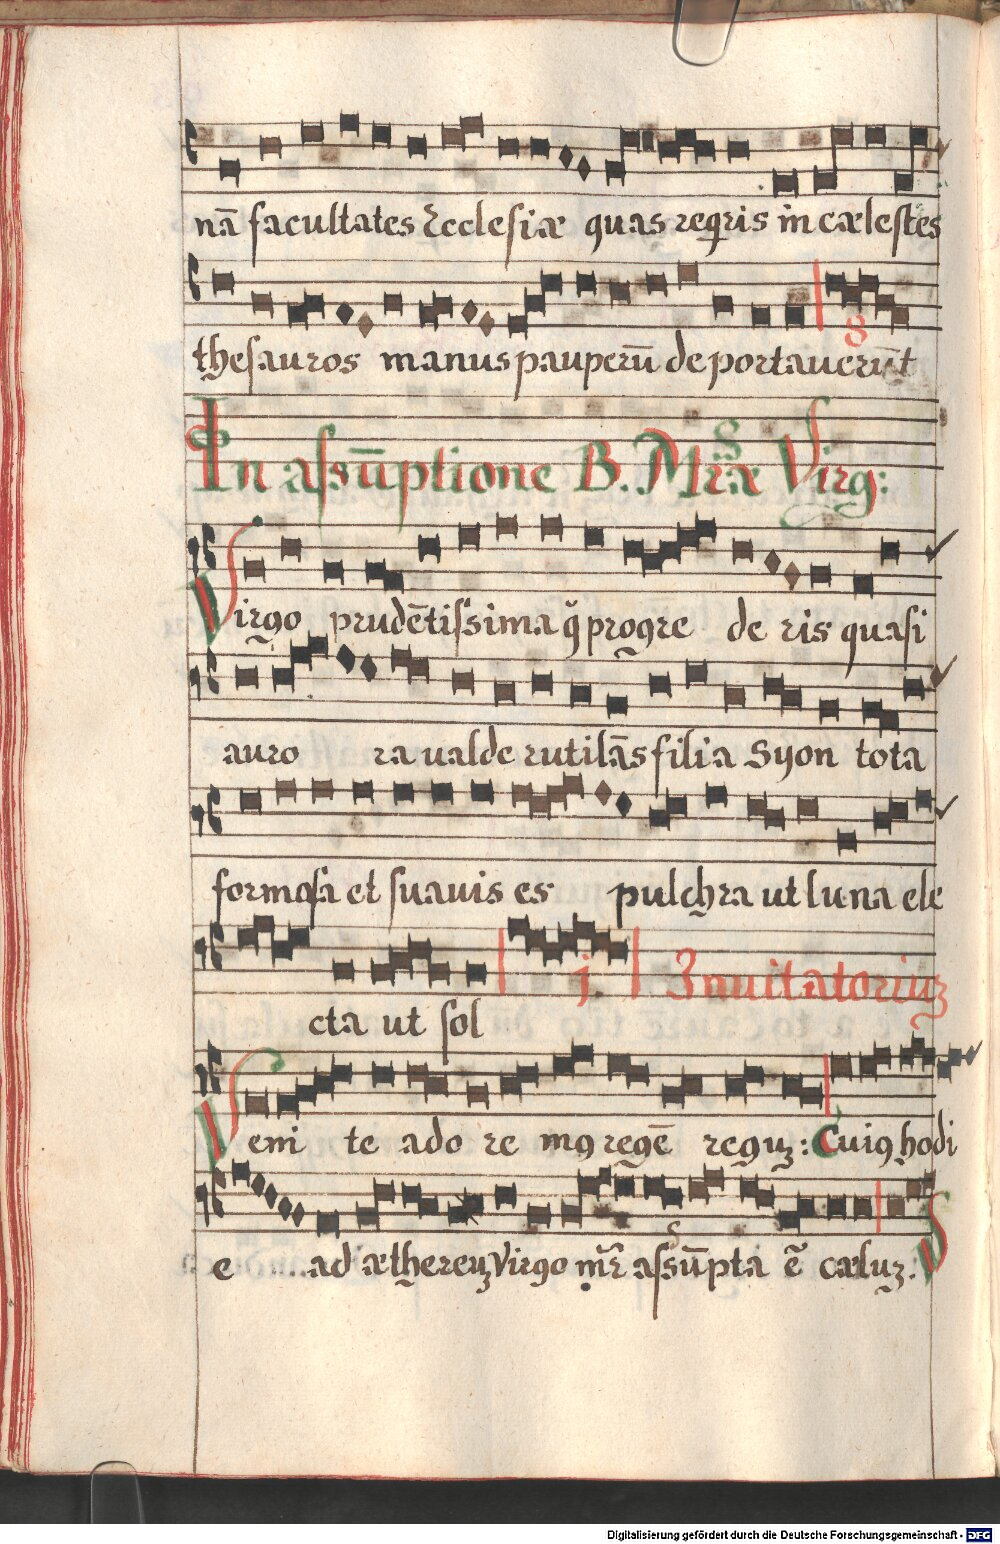 nā facultates Ecclesiæ quas reqris in cælestes
thesauros manus pauperū deportauerūt
8
In assūptione B. Mriæ Virg:
Virgo prudētissima q̄ progre de ris quasi
auro ra ualde rutilās filia Syon tota
formosa et suauis es pulchra ut luna ele
cta ut sol
j. Inuitatoriuʒ
Veni te ado re mꝯ regē reguʒ: Cuiꝯ hodi
e ad æthereuʒ Virgo mr̄ assūpta ē cæluʒ. V
Digitalisierung gefördert durch die Deutsche Forschungsgemeinschaft - DFG